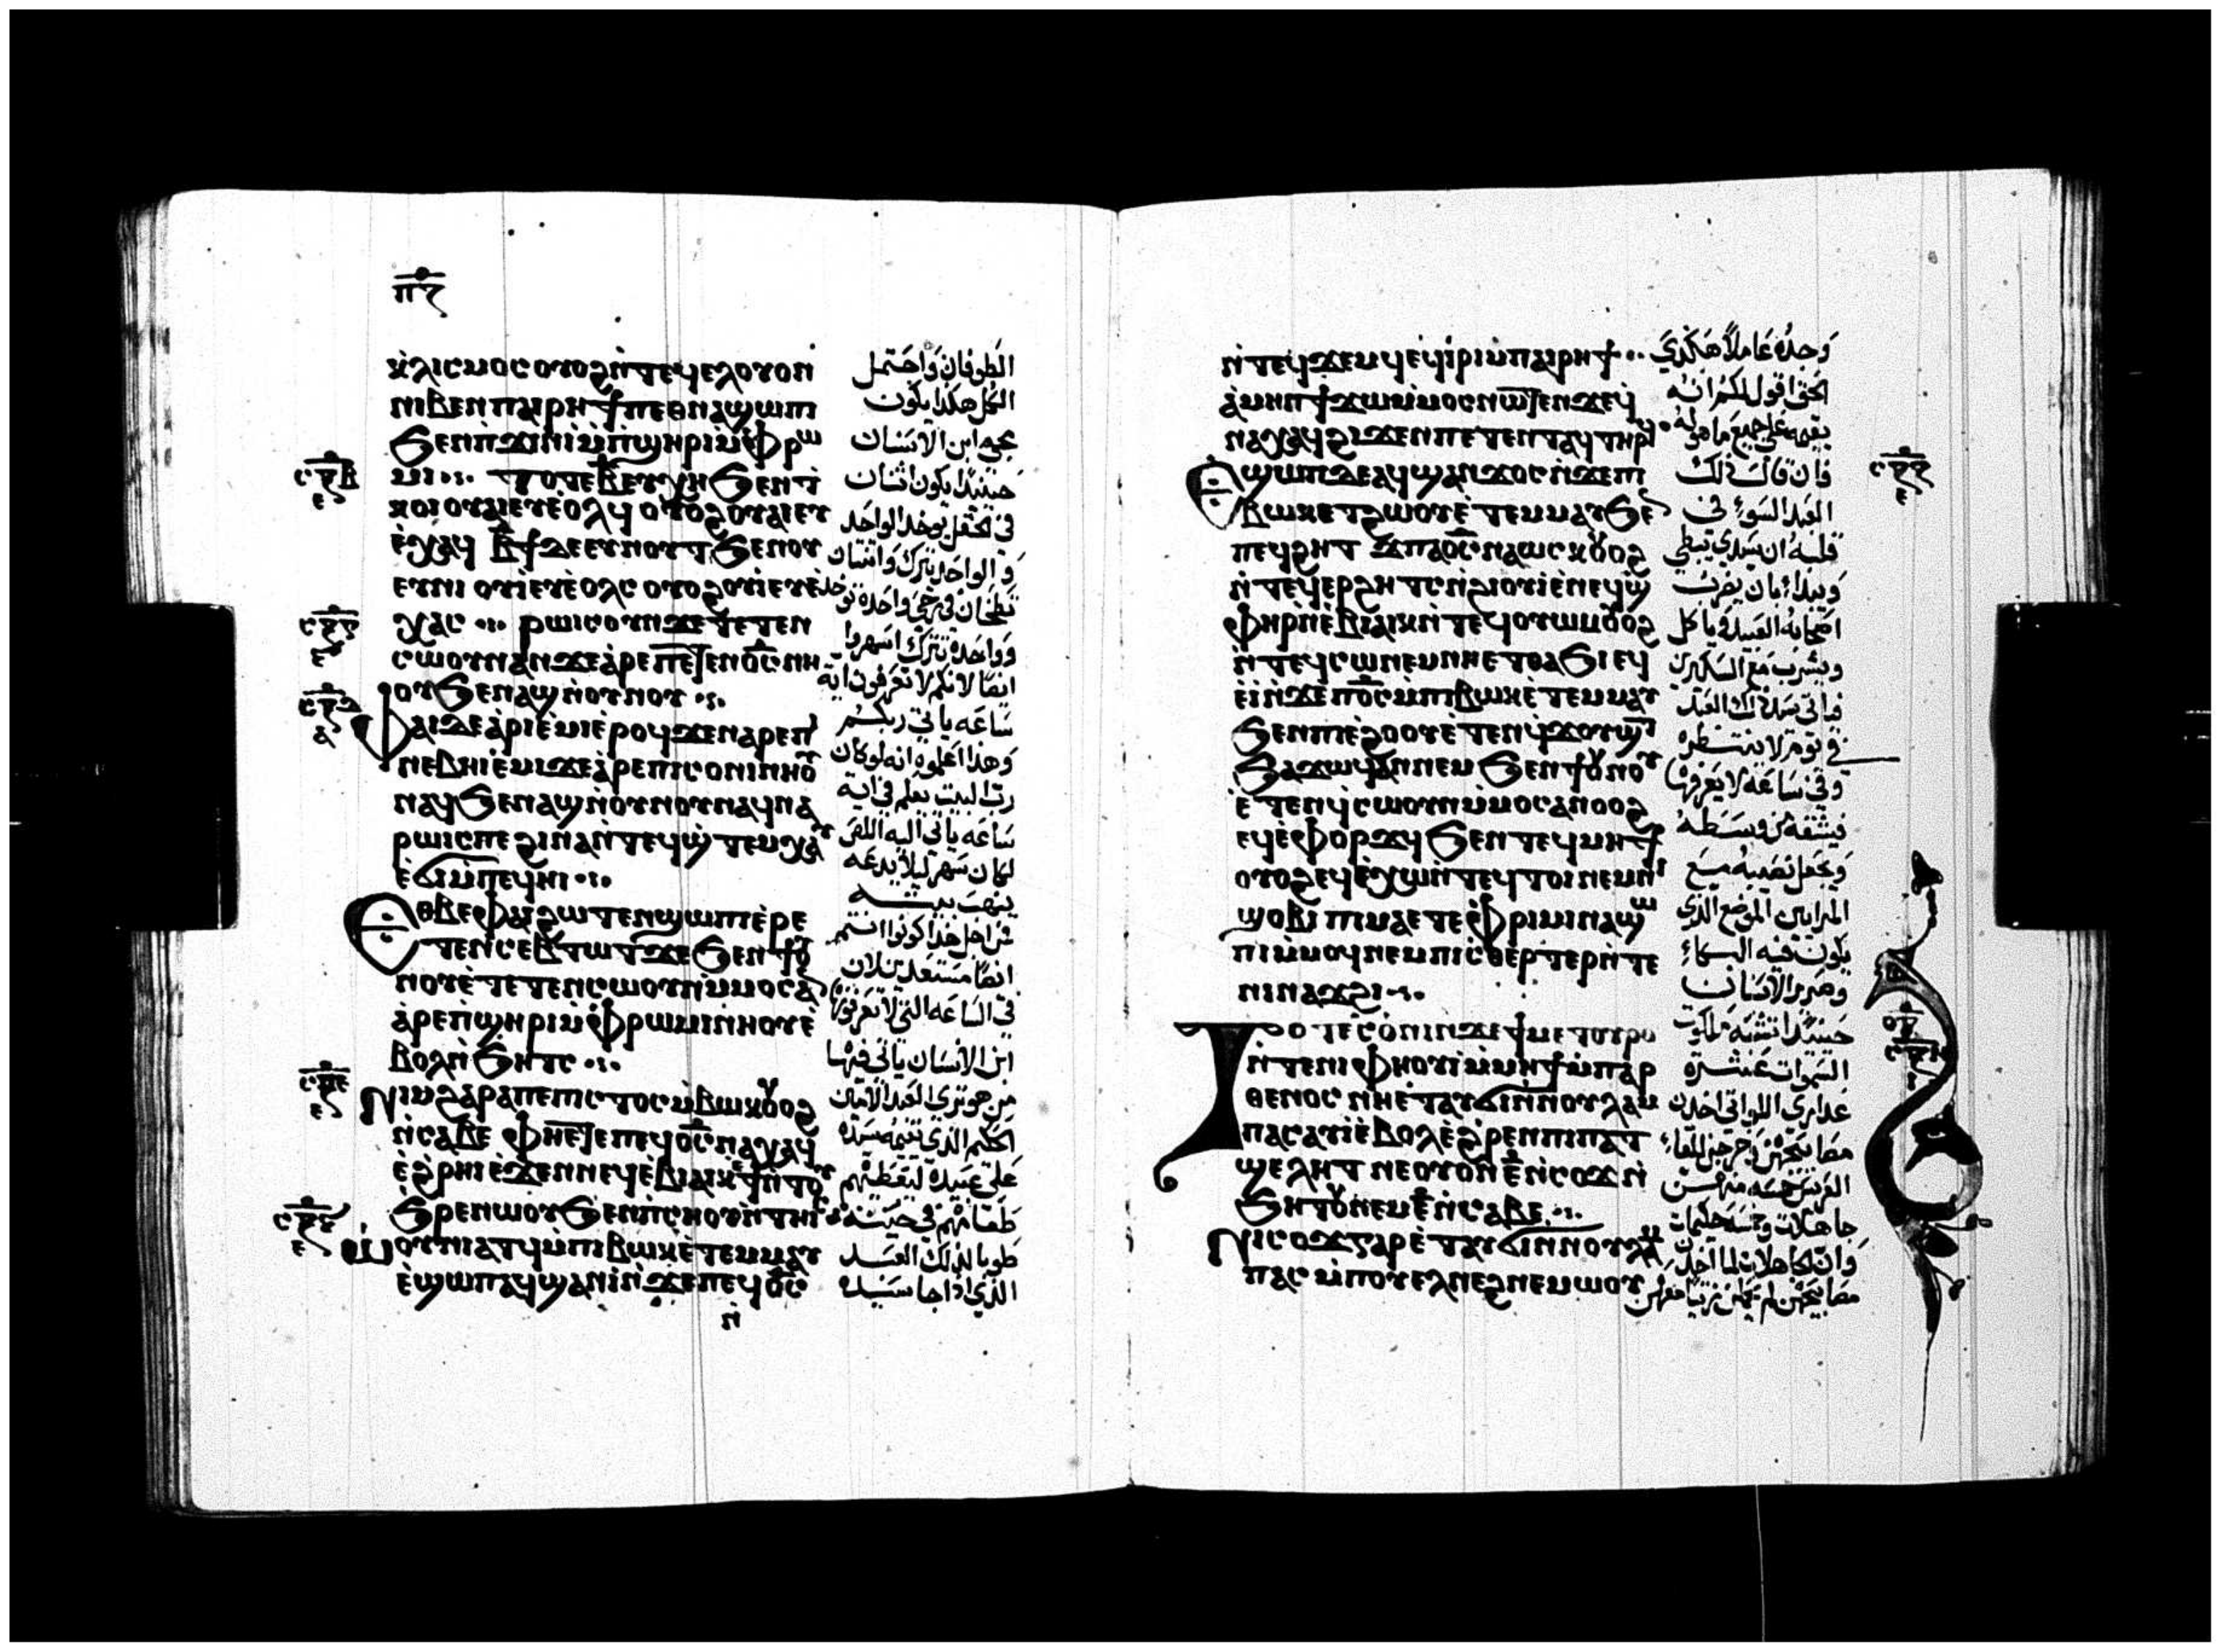 ⲡ̅ⲍ̅
ⲕ̀ⲗⲓⲥⲙⲟⲥ ⲟⲩⲟϩ ⲛ̀ⲧⲉϥⲉⲗ ⲟⲩⲟⲛ
ⲛⲓⲃⲉⲛ ⲡⲁⲓⲣⲏϯ ⲡⲉⲑⲛⲁϣⲱⲡⲓ
ϧⲉⲛⲡϫⲓⲛⲓ̀ ⲙ̀ⲡ̀ϣⲏⲣⲓ ⲙ̀ⲫⲣⲱ
ⲙⲓ ⲧⲟⲧⲉ ⲃ̅ ⲉⲩⲭⲏ ϧⲉⲛⲧ̀
ⲕⲟⲓ ⲟⲩⲁⲓ ⲉⲩⲉ̀ⲟⲗϥ ⲟⲩⲟϩ ⲟⲩⲁⲓ ⲉⲩ
ⲉ̀ⲭⲁϥ ⲃ̅ϯ ⲇⲉ ⲉⲩⲛⲟⲩⲧ ϧⲉⲛ ⲟⲩ
ⲉⲩⲛⲓ ⲟⲩⲓ̀ ⲉⲩⲉ̀ⲟⲗⲥ ⲟⲩⲟϩ ⲟⲩⲓ̀ ⲉⲩⲉ̀
ⲭⲁⲥ ⲣⲱⲓⲥ ⲟⲩⲛ ϫⲉ ⲧⲉⲧⲉⲛ
ⲥⲱⲟⲩⲛ ⲁⲛ ϫⲉ ⲁ̀ⲣⲉ ⲡⲉⲧⲉⲛⲟ̅ⲥ̅ ⲛⲏ
ⲟⲩ ϧⲉⲛⲁϣ ⲛ̀ⲟⲩⲛⲟⲩ
ⲫⲁⲓ ⲇⲉ ⲁ̀ⲣⲓⲉ̀ⲙⲓ ⲉ̀ⲣⲟϥ ϫⲉ ⲛⲁⲣⲉ ⲡⲓ
ⲛⲉⲃⲏⲓ ⲉ̀ⲙⲓ ϫⲉ ⲁ̀ⲣⲉ ⲡⲓⲥⲟⲛⲓ ⲛⲏⲟⲩ
ⲛⲁϥ ϧⲉⲛⲁϣ ⲛ̀ⲟⲩⲛⲟⲩ ⲛⲁϥⲛⲁ
ⲣⲱⲓⲥ ⲡⲉ ϩⲓⲛⲁ ⲛ̀ⲧⲉϥϣ̀ⲧⲉⲙⲭⲁⲩ
ⲉ̀ϭⲓ ⲙ̀ⲡⲉϥⲏⲓ
ⲉⲑⲃⲉ ⲫⲁⲓ ϩⲱⲧⲉⲛ ϣⲱⲡⲓ ⲉ̀ⲣⲉ
ⲧⲉⲛⲥⲉⲃⲧⲱⲧ ϫⲉ ϧⲉⲛ ϯⲟⲩ
ⲛⲟⲩ ⲉ̀ⲧⲉⲧⲉⲛⲥⲱⲟⲩⲛ ⲙ̀ⲙⲟⲥ ⲁⲛ
ⲁ̀ⲣⲉ ⲡ̀ϣⲏⲣⲓ ⲙ̀ⲫⲣⲱⲙⲓ ⲛⲏⲟⲩ ⲉ̀
ⲃⲟⲗ ⲛ̀ϧⲏⲧⲥ
ⲛⲓⲙ ϩⲁⲣⲁ ⲡⲉ ⲡⲓⲡⲓⲥⲧⲟⲥ ⲙ̀ⲃⲱⲕ ⲟⲩⲟϩ
ⲛ̀ⲥⲁⲃⲉ ⲫⲏⲉⲧⲉ ⲡⲉϥⲟ̅ⲥ̅ ⲛⲁⲭⲁϥ
ⲉ̀ϩ̀ⲣⲏⲓ ⲉ̀ϫⲉⲛ ⲛⲉϥⲉ̀ⲃⲓⲁⲓⲕ ⲉ̀ϯ ⲛ̀ⲧⲟⲩ
ϧ̀ⲣⲉ ⲛⲱⲟⲩ ϧⲉⲛ ⲡ̀ⲥⲏⲟⲩ ⲛ̀ⲧⲏⲓⲥ
ⲱ̀ⲟⲩⲛⲓⲁⲧϥ ⲙ̀ⲡⲓⲃⲱⲕ ⲉ̀ⲧⲉⲙⲙⲁⲩ
ⲉ̀ϣⲱⲡ ⲁϥϣⲁⲛⲓ̀ ⲛ̀ϫⲉ ⲡⲉϥⲟ̅ⲥ̅
ⲛ̀
الطوفان واحتمل
الكل هكذا يكون
مجي ابن الانسان
حينئذا يكون اثنان
في الحقل يوخذ الواحد
والواحد يترك واثنتان
تطحنان في رحى واحدة توخذ
وواحدة تترك اسهروا
ايضا لانكم لا تعرفون اية
ساعه ياتي ربكم
وهذا اعلموه انه لو كان
رب البيت يعلم في اية
ساعه ياتي اليه اللص
لكان سهر ليلا يدعه
ينهب بيته
من اجل هذا كونوا انتم
ايضا مستعدين لان
في الساعه التي لا تعرفونها
ابن الانسان ياتي فيها
من هو تري العبد الامين
الحكيم الذي يقيمه سيده
على عبيده ليعطيهم
طعامهم في حينه
طوبا لذلك العبد
الذي اذا جا سيده
ⲛ̀ⲧⲉϥϫⲉⲙϥ ⲉϥⲓ̀ⲣⲓ ⲙ̀ⲡⲁⲓⲣⲏϯ
ⲁ̀ⲙⲏⲛ ϯϫⲱ ⲙ̀ⲙⲟⲥ ⲛⲱⲧⲉⲛ ϫⲉ ϥ
ⲛⲁⲭⲁϥ ϩⲓϫⲉⲛ ⲡⲉⲧⲉⲛⲧⲁϥ ⲧⲏⲣϥ
ⲉϣⲱⲡ ⲇⲉ ⲁϥϣⲁⲛϫⲟⲥ ⲛ̀ϫⲉ ⲡⲓ
ⲃⲱⲕ ⲉⲧϩⲱⲟⲩ ⲉ̀ⲧⲉⲙⲙⲁⲩ ϧⲉⲛ
ⲡⲉϥϩⲏⲧ ϫⲉ ⲡⲁⲟ̅ⲥ̅ ⲛⲁⲱⲥⲕ ⲟⲩⲟϩ
ⲛ̀ⲧⲉϥⲉⲣϩⲏⲧⲥ ⲛ̀ϩⲓⲟⲩⲓ̀ ⲉ̀ⲛⲉϥϣ̀
ⲫⲏⲣ ⲛ̀ⲉ̀ⲃⲓⲁⲓⲕ ⲛ̀ⲧⲉϥⲟⲩⲱⲙ ⲟⲩⲟϩ
ⲛ̀ⲧⲉϥⲥⲱ ⲛⲉⲙ ⲛⲏⲉⲧⲑⲁϧⲓ ⲉϥ
ⲉ̀ⲓ̀ ⲛ̀ϫⲉ ⲡⲟ̅ⲥ̅ ⲙ̀ⲡⲓⲃⲱⲕ ⲉ̀ⲧⲉⲙⲙⲁⲩ
ϧⲉⲛ ⲡⲓⲉ̀ϩⲟⲟⲩ ⲉ̀ⲧⲉⲛϥϫⲟⲩϣⲧ
ϧⲁϫⲱϥ ⲁⲛ ⲛⲉⲙ ϧⲉⲛ ϯⲟⲩⲛⲟⲩ
ⲉ̀ⲧⲉⲛϥⲥⲱⲟⲩⲛ ⲙ̀ⲙⲟⲥ ⲁⲛ ⲟⲩⲟϩ
ⲉϥⲉ̀ⲫⲟⲣϫϥ ϧⲉⲛ ⲧⲉϥⲙⲏϯ
ⲟⲩⲟϩ ⲉϥⲉ̀ⲭⲱ ⲛ̀ⲧⲉϥⲧⲟⲓ ⲛⲉⲙ ⲛⲓ
ϣⲟⲃⲓ ⲡⲓⲙⲁ ⲉⲧⲉ ⲫ̀ⲣⲓⲙⲓ ⲛⲁϣⲱ
ⲡⲓ ⲙ̀ⲙⲟϥ ⲛⲉⲙ ⲡⲓⲥⲑⲉⲣⲧⲉⲣ ⲛ̀ⲧⲉ
ⲛⲓⲛⲁϫϩⲓ
ⲧⲟⲧⲉ ⲥ̀ⲟⲛⲓ ⲛ̀ϫⲉ ϯⲙⲉⲧⲟⲩⲣⲟ
ⲛ̀ⲧⲉ ⲛⲓⲫⲏⲟⲩⲓ̀ ⲙ̀ⲙⲏϯ ⲙ̀ⲡⲁⲣ
ⲑⲉⲛⲟⲥ ⲛⲏⲉ̀ⲧⲁⲩϭⲓ ⲛ̀ⲛⲟⲩⲗⲁⲙ
ⲡⲁⲥ ⲁⲩⲓ̀ ⲉ̀ⲃⲟⲗ ⲉ̀ϩ̀ⲣⲉⲛ ⲡⲓⲡⲁⲧ
ϣⲉⲗⲏⲧ ⲛⲉ ⲟⲩⲟⲛ ⲉ̅ ⲛ̀ⲥⲟϫ ⲛ̀
ϧⲏⲧⲟⲩ ⲛⲉⲙ ⲉ̅ ⲛ̀ⲥⲁⲃⲉ
ⲛⲓⲥⲟϫ ⲅⲁⲣ ⲉ̀ⲧⲁⲩϭⲓ ⲛ̀ⲛⲟⲩⲗⲁⲙ
ⲡⲁⲥ ⲙ̀ⲡⲟⲩⲉⲗ ⲛⲉϩ ⲛⲉⲙⲱⲟⲩ
وجده عاملا هكذي
الحق اقول لكم انه
يقيمه على جميع ما هو له
فان قال ذلك
العبد السوء في
قلبه ان سيدي يبطي
ويبداء بان يضرب
اصحابه العبيد وياكل
ويشرب مع السكيرين
فياتي سيد ذلك العبد
في يوم لا ينتظره
وفي ساعه لا يعرفها
فيشقه من وسطه
ويجعل نصيبه مع
المرايين الموضع الذي
يكون فيه البكاء
وصرير الاسنان
حينئذا تشبه ملكوت
السموات عشرة
عذاري اللواتي اخذن
مصابيحهن وخرجن للقاء
العريس خمسه منهن
جاهلات وخمسه حكيمات
وان الجاهلات لما اخذن
مصابيحهن لم يحملن زيتا معهن